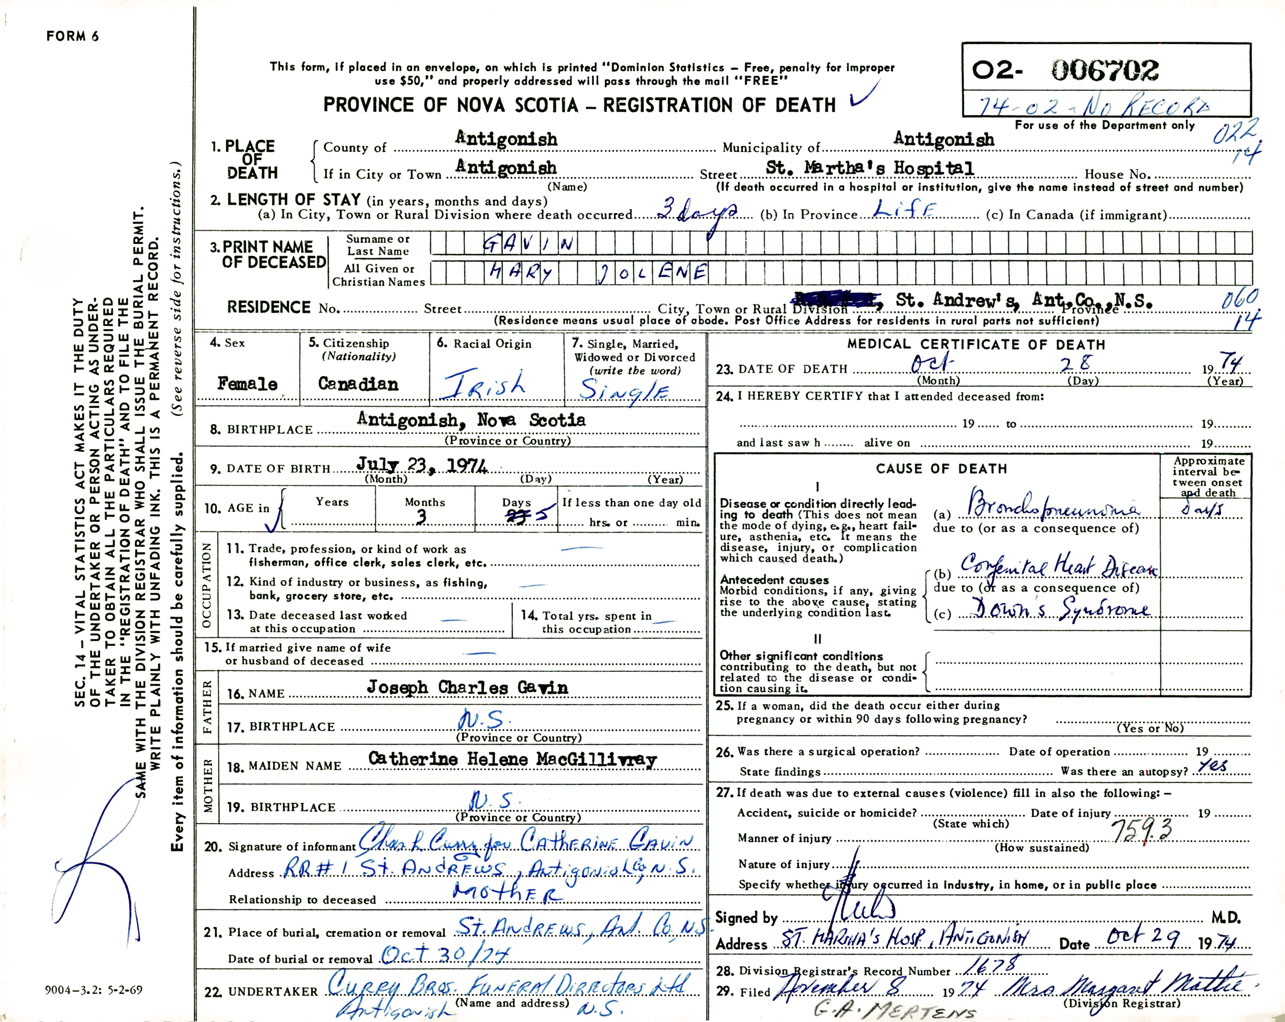 FORM 6
This form, if placed in an envelope, on which is printed "Dominion Statistics – Free, penalty for improper
use $50," and properly addressed will pass through the mail "FREE"
PROVINCE OF NOVA SCOTIA – REGISTRATION OF DEATH ✓
O2- 006702
74-02-No RECORD
For use of the Department only
022
14
1. PLACE OF DEATH
County of Antigonish Municipality of Antigonish
If in City or Town Antigonish Street St. Martha's Hospital House No.
(Name) (If death occurred in a hospital or institution, give the name instead of street and number)
2. LENGTH OF STAY (in years, months and days)
(a) In City, Town or Rural Division where death occurred 3 days (b) In Province LIFE (c) In Canada (if immigrant)
3. PRINT NAME OF DECEASED
Surname or Last Name GAVIN
All Given or Christian Names MARY JOLENE
RESIDENCE No. Street City, Town or Rural Division , St. Andrew's, Ant.Co., N.S. Province
060
14
(Residence means usual place of abode. Post Office Address for residents in rural parts not sufficient)
4. Sex
Female
5. Citizenship
(Nationality)
Canadian
6. Racial Origin
IRISH
7. Single, Married,
Widowed or Divorced
(write the word)
SINGLE
8. BIRTHPLACE Antigonish, Nova Scotia
(Province or Country)
9. DATE OF BIRTH July 23, 1974
(Month) (Day) (Year)
10. AGE in Years Months Days If less than one day old
3 5 hrs. or min.
OCCUPATION
11. Trade, profession, or kind of work as —
fisherman, office clerk, sales clerk, etc.
12. Kind of industry or business, as fishing, —
bank, grocery store, etc.
13. Date deceased last worked —
at this occupation
14. Total yrs. spent in —
this occupation
15. If married give name of wife —
or husband of deceased
FATHER
16. NAME Joseph Charles Gavin
17. BIRTHPLACE N.S.
(Province or Country)
MOTHER
18. MAIDEN NAME Catherine Helene MacGillivray
19. BIRTHPLACE N.S.
(Province or Country)
20. Signature of informant Chas L Curry for CATHERINE GAVIN
Address RR#1 ST. ANDREWS, Antigonish Co, N.S.
Relationship to deceased MOTHER
21. Place of burial, cremation or removal ST. ANDREWS, ANT. Co, N.S.
Date of burial or removal Oct 30/74
22. UNDERTAKER CURRY BROS. FUNERAL DIRECTORS Ltd
(Name and address)
Antigonish N.S.
MEDICAL CERTIFICATE OF DEATH
23. DATE OF DEATH Oct 28 1974
(Month) (Day) (Year)
24. I HEREBY CERTIFY that I attended deceased from:
19 to 19
and last saw h alive on 19
CAUSE OF DEATH
Approximate
interval be-
tween onset
and death
I
Disease or condition directly lead-
ing to death (This does not mean
the mode of dying, e.g., heart fail-
ure, asthenia, etc. It means the
disease, injury, or complication
which caused death.)
(a) Bronchopneumonia days
due to (or as a consequence of)
Antecedent causes
Morbid conditions, if any, giving
rise to the above cause, stating
the underlying condition last.
(b) Congenital Heart Disease
due to (or as a consequence of)
(c) Down's Syndrome
II
Other significant conditions
contributing to the death, but not
related to the disease or condi-
tion causing it.
25. If a woman, did the death occur either during
pregnancy or within 90 days following pregnancy?
(Yes or No)
26. Was there a surgical operation? Date of operation 19
State findings Was there an autopsy? Yes
27. If death was due to external causes (violence) fill in also the following: –
Accident, suicide or homicide? Date of injury 19
(State which)
Manner of injury 759.3
(How sustained)
Nature of injury
Specify whether injury occurred in Industry, in home, or in public place
Signed by M.D.
Address ST. MARTHA'S HOSP, ANTIGONISH Date Oct 29 1974
28. Division Registrar's Record Number 1678
29. Filed November 8 1974 Mrs Margaret Mattie
(Division Registrar)
G.A. MERTENS
SEC. 14 – VITAL STATISTICS ACT MAKES IT THE DUTY
OF THE UNDERTAKER OR PERSON ACTING AS UNDER-
TAKER TO OBTAIN ALL THE PARTICULARS REQUIRED
IN THE "REGISTRATION OF DEATH" AND TO FILE THE
SAME WITH THE DIVISION REGISTRAR WHO SHALL ISSUE THE BURIAL PERMIT.
WRITE PLAINLY WITH UNFADING INK. THIS IS A PERMANENT RECORD.
Every item of information should be carefully supplied. (See reverse side for instructions.)
9004-3.2: 5-2-69